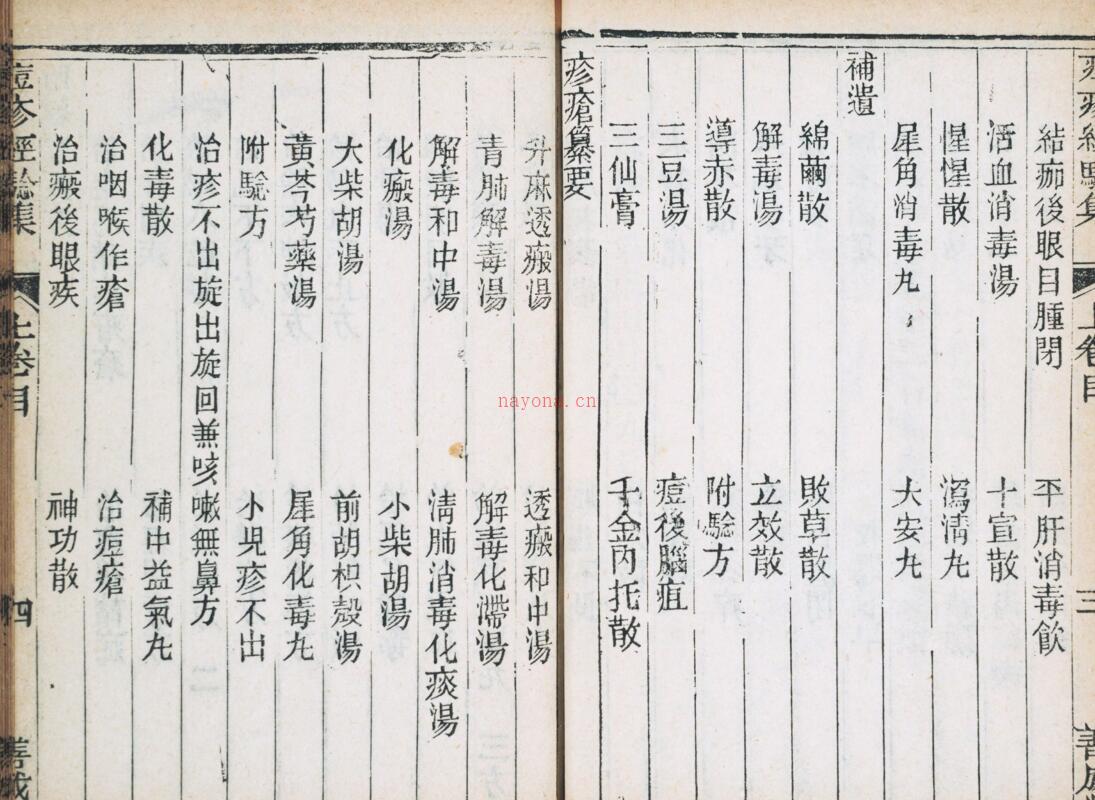 結痂後眼目腫閉　平肝消毒飲
活血消毒湯　十宣散
惺惺散　瀉清丸
犀角消毒丸　大安丸
補遺
綿繭散　敗草散
解毒湯　立效散
導赤散　附驗方
三豆湯　痘後腦疽
三仙膏　千金內托散
疹瘡纂要
升麻透癍湯　透癍和中湯
青肺解毒湯　解毒化滯湯
解毒和中湯　清肺消毒化痰湯
化癍湯　小柴胡湯
大柴胡湯　前胡枳殼湯
黃芩芍藥湯　犀角化毒丸
附驗方　小兒疹不出
治疹不出旋出旋回兼咳嗽無鼻方
化毒散　補中益氣丸
治咽喉作瘡　治痘瘡
治癍後眼疾　神功散
痘疹經驗集　上卷目　四　善成
nayona.cn